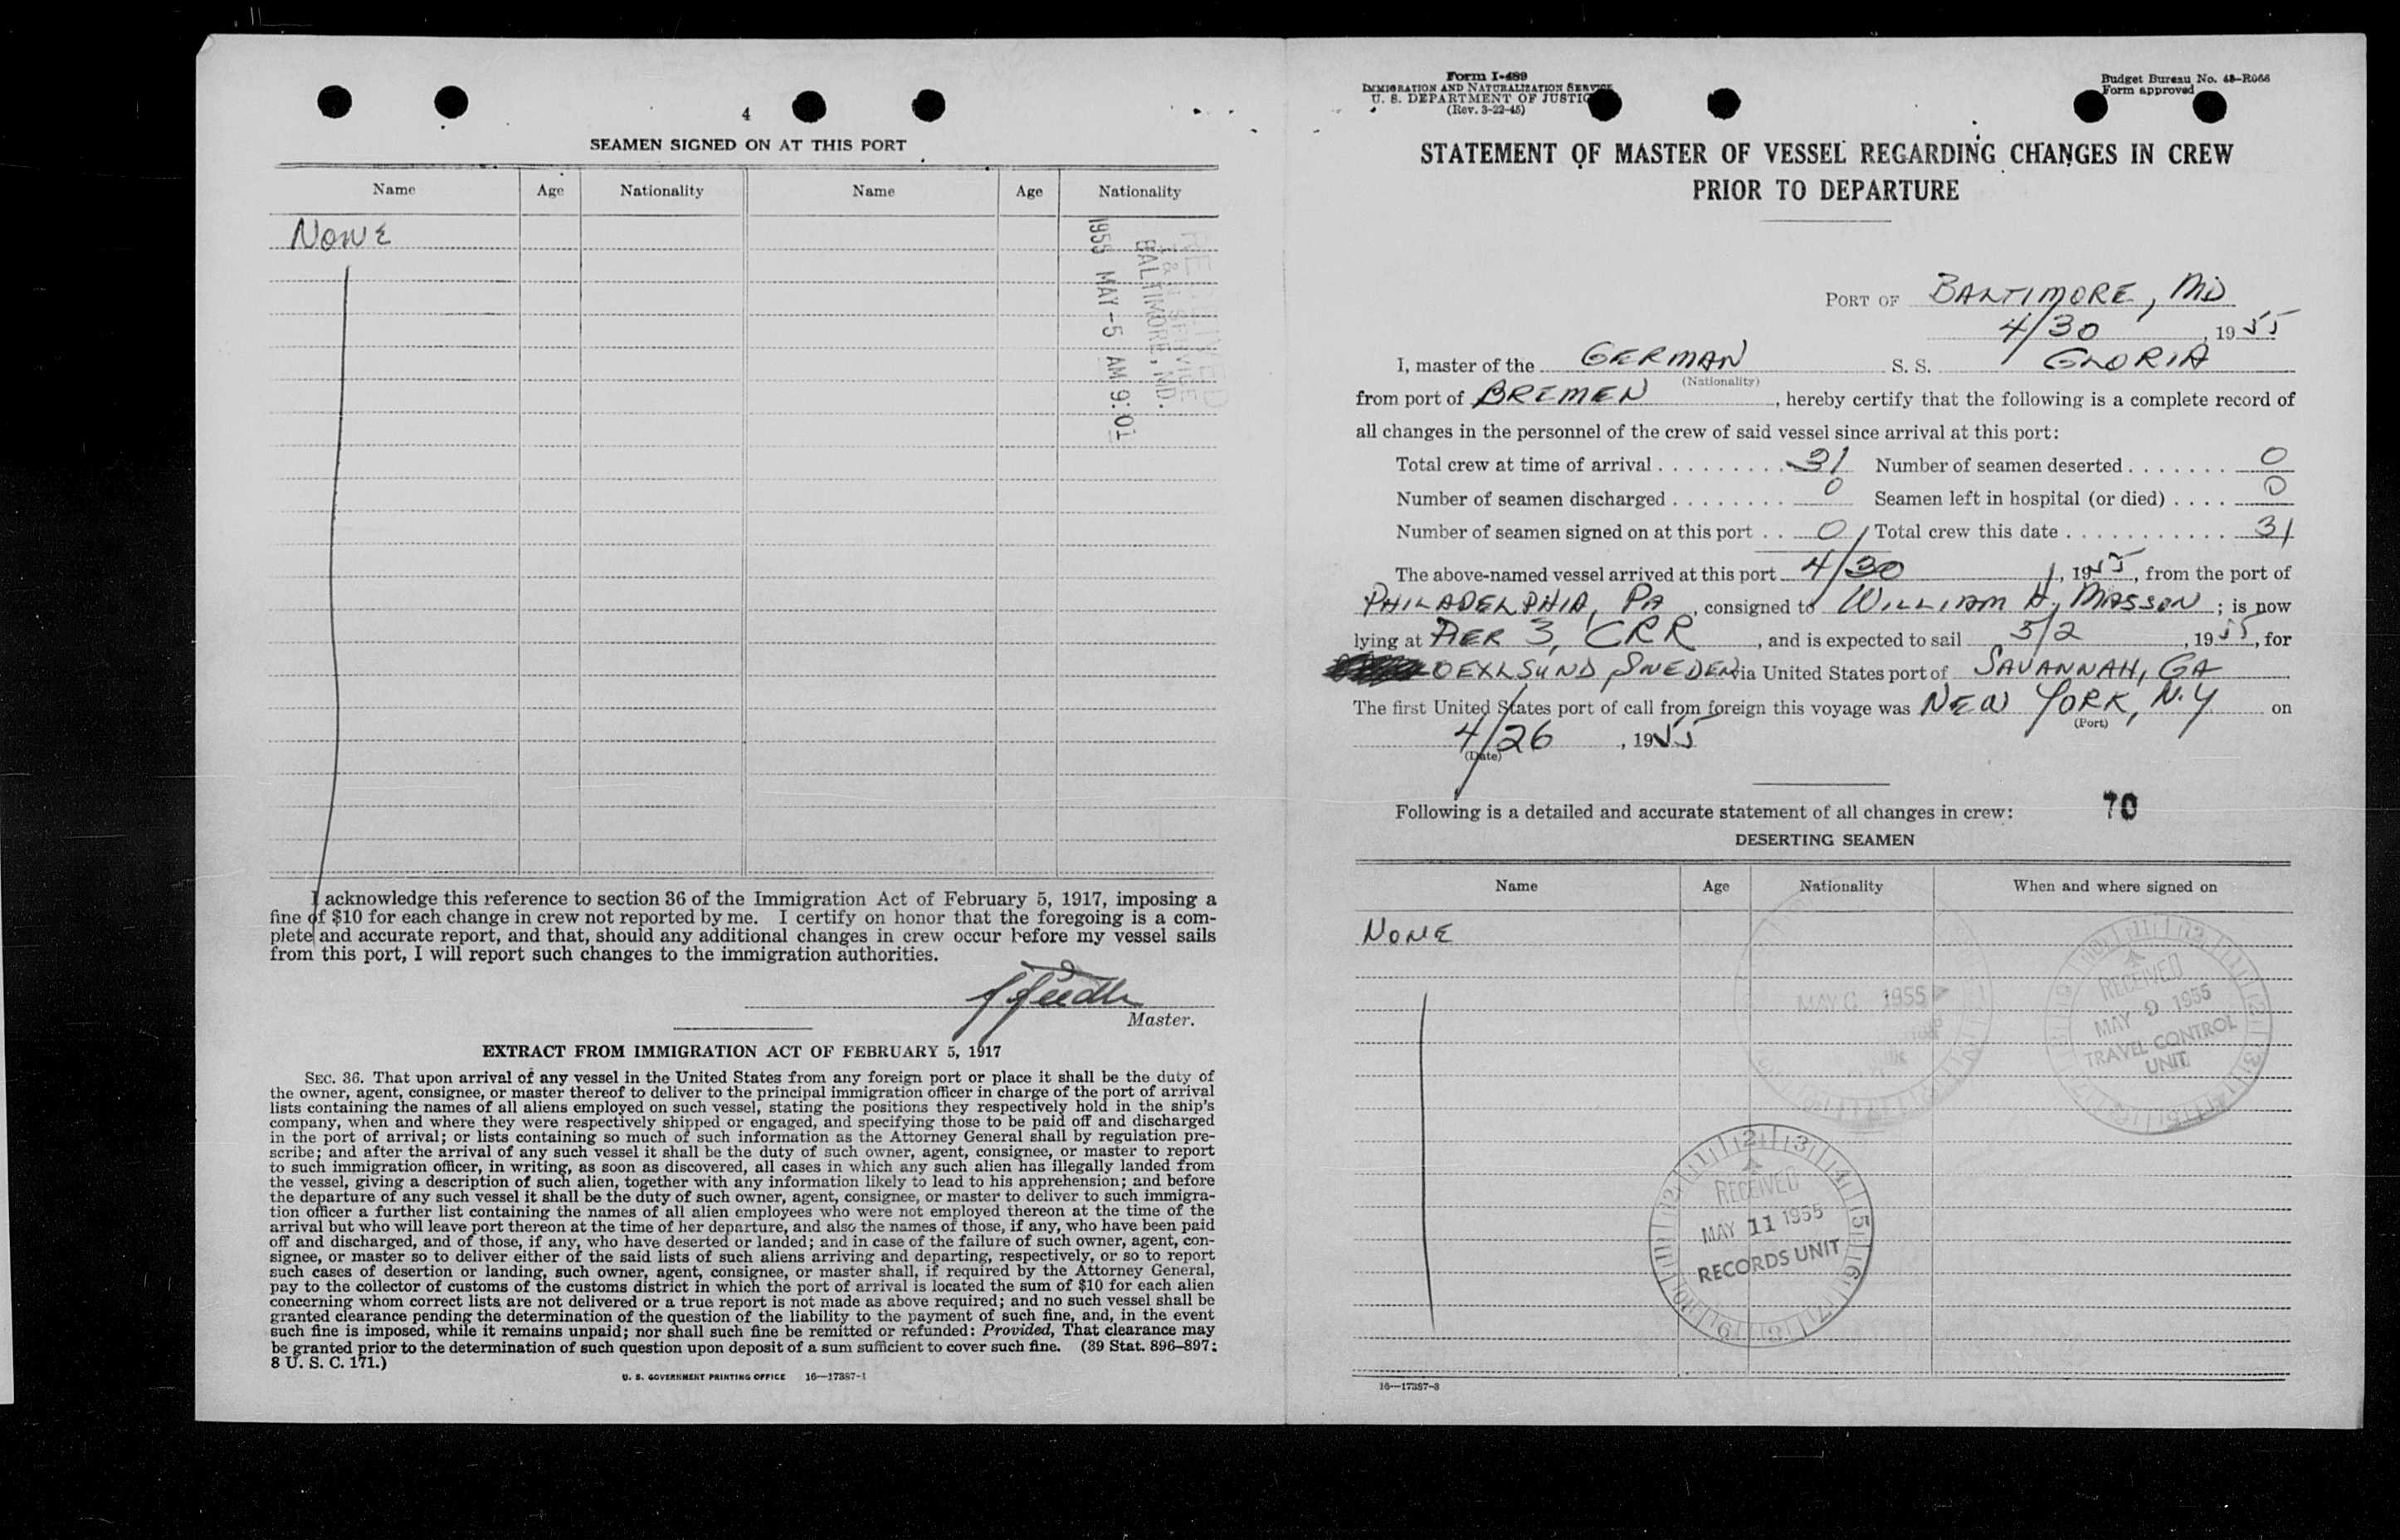 4
SEAMEN SIGNED ON AT THIS PORT
Name Age Nationality Name Age Nationality
NONE
RECEIVED
I & N SERVICE
BALTIMORE, MD.
1955 MAY -5 AM 9:01
I acknowledge this reference to section 36 of the Immigration Act of February 5, 1917, imposing a
fine of $10 for each change in crew not reported by me. I certify on honor that the foregoing is a com-
plete and accurate report, and that, should any additional changes in crew occur before my vessel sails
from this port, I will report such changes to the immigration authorities.
Master.
EXTRACT FROM IMMIGRATION ACT OF FEBRUARY 5, 1917
SEC. 36. That upon arrival of any vessel in the United States from any foreign port or place it shall be the duty of
the owner, agent, consignee, or master thereof to deliver to the principal immigration officer in charge of the port of arrival
lists containing the names of all aliens employed on such vessel, stating the positions they respectively hold in the ship's
company, when and where they were respectively shipped or engaged, and specifying those to be paid off and discharged
in the port of arrival; or lists containing so much of such information as the Attorney General shall by regulation pre-
scribe; and after the arrival of any such vessel it shall be the duty of such owner, agent, consignee, or master to report
to such immigration officer, in writing, as soon as discovered, all cases in which any such alien has illegally landed from
the vessel, giving a description of such alien, together with any information likely to lead to his apprehension; and before
the departure of any such vessel it shall be the duty of such owner, agent, consignee, or master to deliver to such immigra-
tion officer a further list containing the names of all alien employees who were not employed thereon at the time of the
arrival but who will leave port thereon at the time of her departure, and also the names of those, if any, who have been paid
off and discharged, and of those, if any, who have deserted or landed; and in case of the failure of such owner, agent, con-
signee, or master so to deliver either of the said lists of such aliens arriving and departing, respectively, or so to report
such cases of desertion or landing, such owner, agent, consignee, or master shall, if required by the Attorney General,
pay to the collector of customs of the customs district in which the port of arrival is located the sum of $10 for each alien
concerning whom correct lists are not delivered or a true report is not made as above required; and no such vessel shall be
granted clearance pending the determination of the question of the liability to the payment of such fine, and, in the event
such fine is imposed, while it remains unpaid; nor shall such fine be remitted or refunded: Provided, That clearance may
be granted prior to the determination of such question upon deposit of a sum sufficient to cover such fine. (39 Stat. 896–897;
8 U. S. C. 171.)
U. S. GOVERNMENT PRINTING OFFICE 16—17387-1
Form I-489
IMMIGRATION AND NATURALIZATION SERVICE
U. S. DEPARTMENT OF JUSTIC
(Rev. 3-22-45)
Budget Bureau No. 43-R066
Form approved
STATEMENT OF MASTER OF VESSEL REGARDING CHANGES IN CREW
PRIOR TO DEPARTURE
PORT OF BALTIMORE, MD
4/30, 1955
I, master of the GERMAN S. S. GLORIA
(Nationality)
from port of BREMEN, hereby certify that the following is a complete record of
all changes in the personnel of the crew of said vessel since arrival at this port:
Total crew at time of arrival . . . . . . . . . 31 Number of seamen deserted . . . . . . . 0
Number of seamen discharged . . . . . . . . 0 Seamen left in hospital (or died) . . . . 0
Number of seamen signed on at this port . . 0 Total crew this date . . . . . . . . . . . 31
The above-named vessel arrived at this port 4/30, 1955, from the port of
PHILADELPHIA, PA, consigned to WILLIAM H. MASSON; is now
lying at PIER 3, CRR, and is expected to sail 5/2, 1955, for
OEXLSUND SWEDEN via United States port of SAVANNAH, GA
The first United States port of call from foreign this voyage was NEW YORK, N.Y on
(Port)
4/26, 1955
(Date)
Following is a detailed and accurate statement of all changes in crew: 70
DESERTING SEAMEN
Name Age Nationality When and where signed on
NONE
MAY 1955
RECEIVED
MAY 9 1955
TRAVEL CONTROL
UNIT
RECEIVED
MAY 11 1955
RECORDS UNIT
16—17387-3